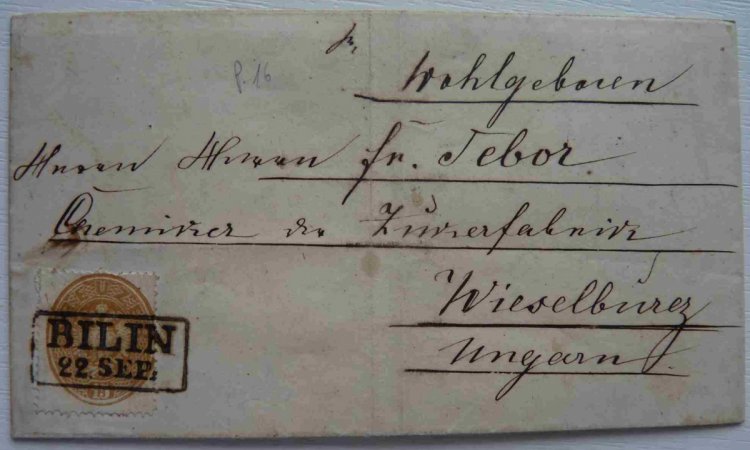 p. 16
Wohlgeboren
Herrn Herrn Fr. Tebor
Chemiker der Zuckerfabrik
Wieselburg
Ungarn.
BILIN
22. SEP.
15